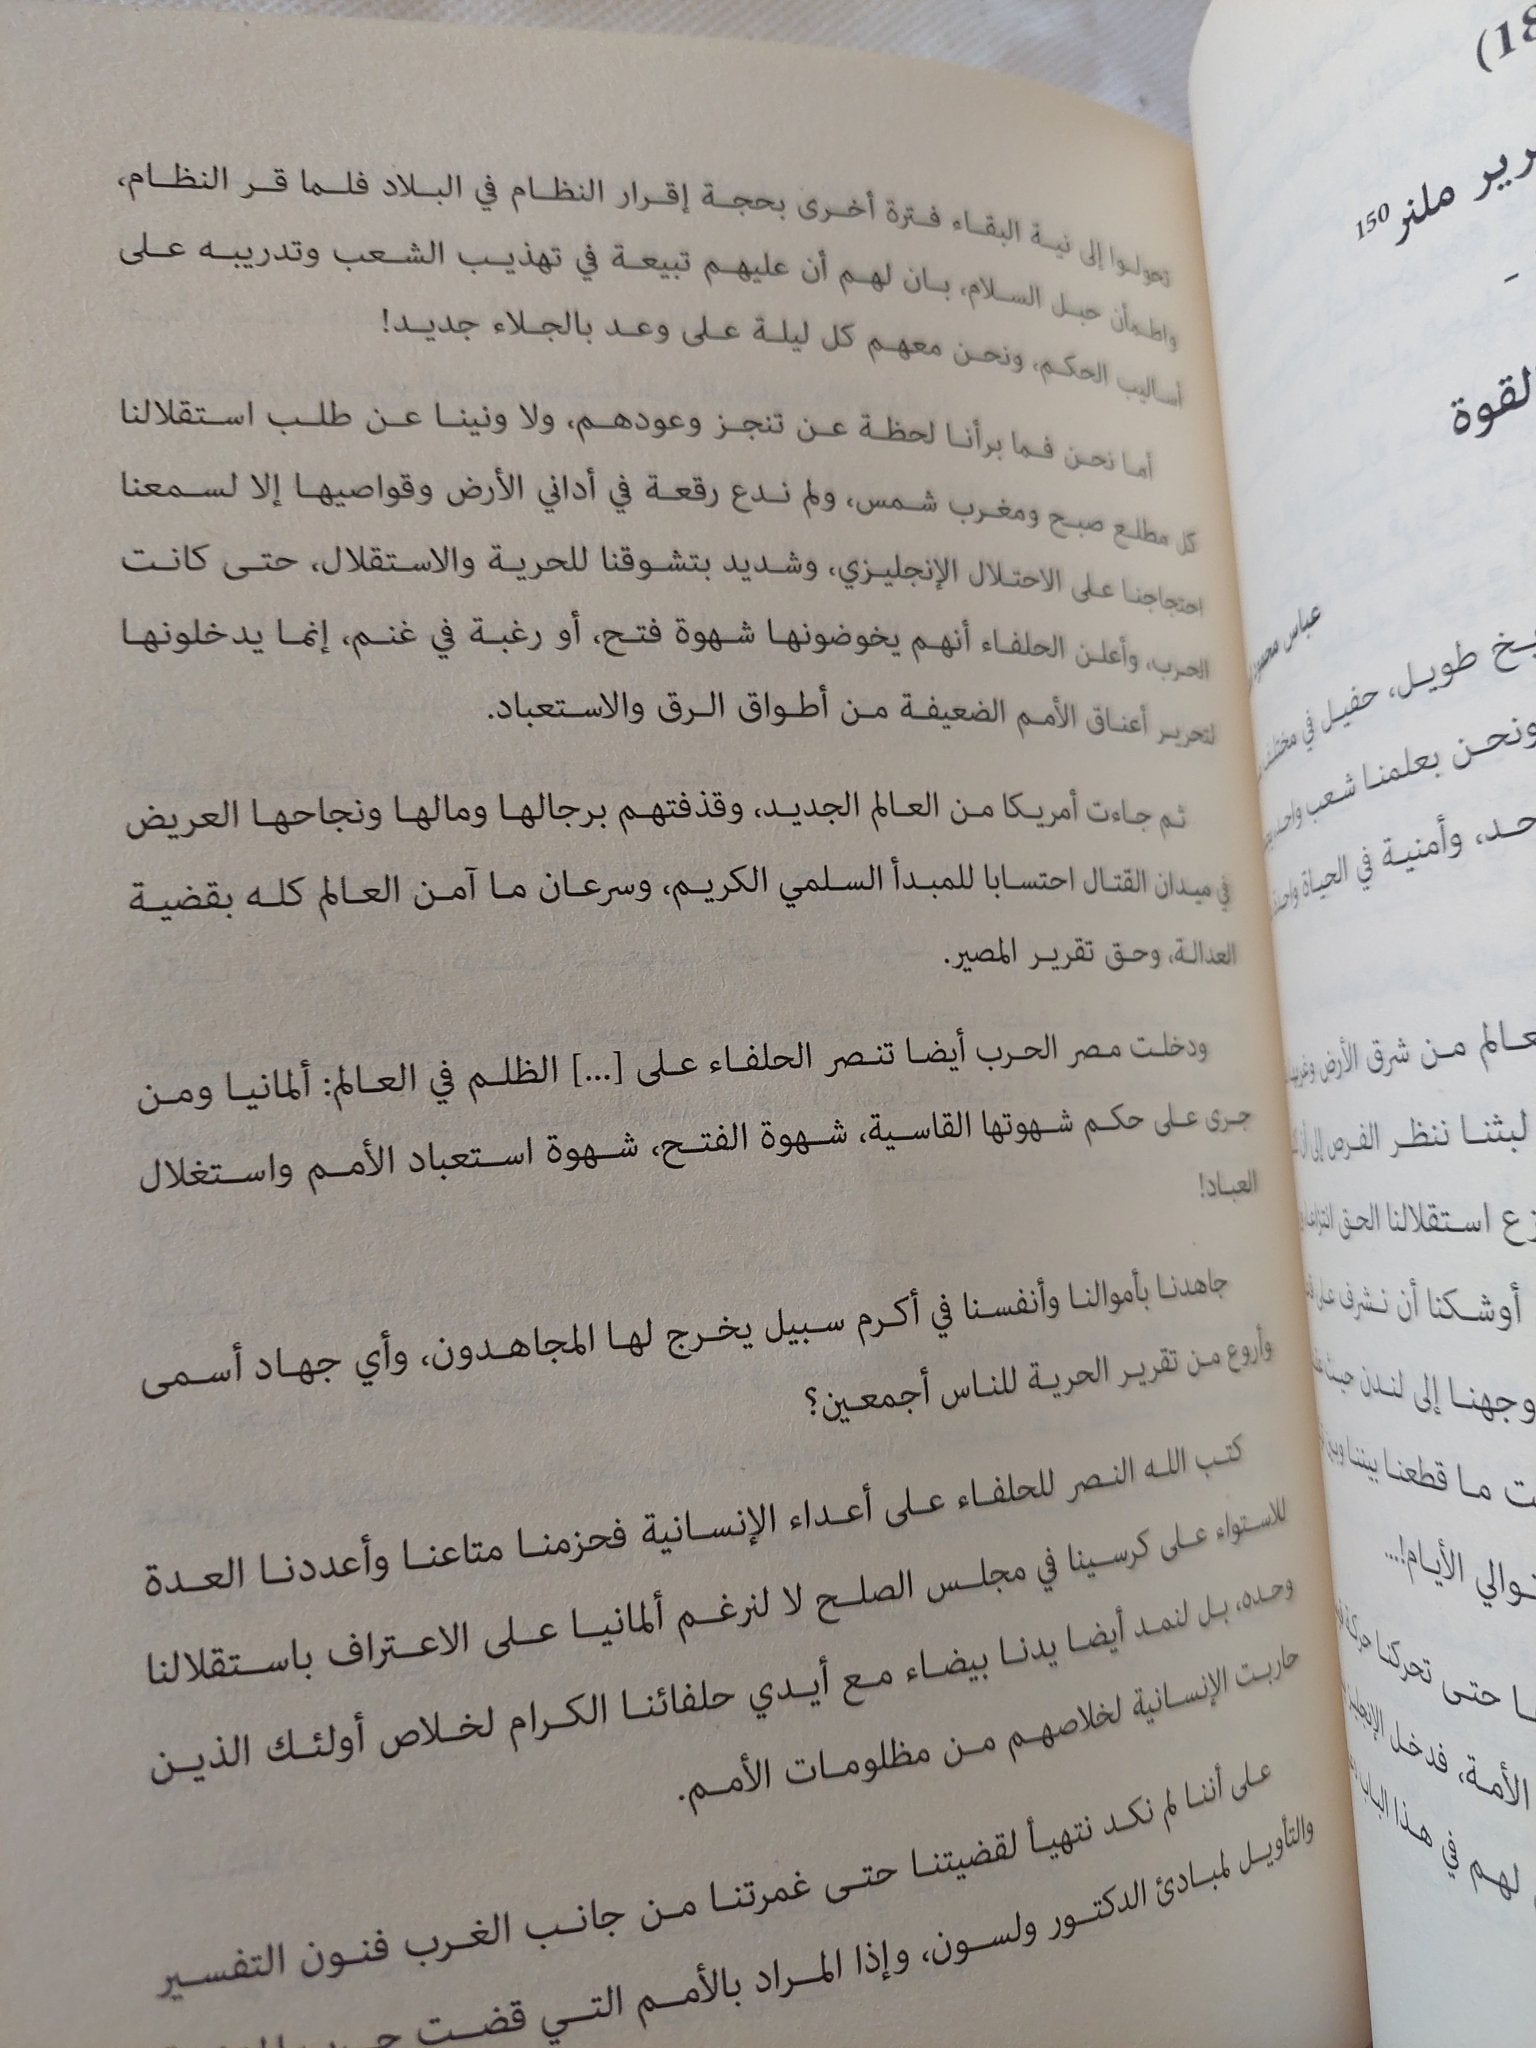 (18
رير ملنر 150
-
القوة
عباس محمود
طويل، حفيل في
ونحن بعلمنا شعب واحد
وأمنية في الحياة
من شرق الأرض
لبثنا ننظر الفرص إلى أن
استقلالنا الحق
أوشكنا أن نشرف على
إلى لندن
ما قطعنا بيننا
الأيام!...
حتى تحركنا
الأمة، فدخل
لهم في هذا الباب
تحولوا إلى نية البقاء فترة أخرى بحجة إقرار النظام في البلاد فلما قر النظام،
واطمأن حبل السلام، بان لهم أن عليهم تبيعة في تهذيب الشعب وتدريبه على
أساليب الحكم، ونحن معهم كل ليلة على وعد بالجلاء جديد!
أما نحن فما برأنا لحظة عن تنجز وعودهم، ولا ونينا عن طلب استقلالنا
كل مطلع صبح ومغرب شمس، ولم ندع رقعة في أداني الأرض وقواصيها إلا لسمعنا
احتجاجنا على الاحتلال الإنجليزي، وشديد بتشوقنا للحرية والاستقلال، حتى كانت
الحرب، وأعلن الحلفاء أنهم يخوضونها شهوة فتح، أو رغبة في غنم، إنما يدخلونها
لتحرير أعناق الأمم الضعيفة من أطواق الرق والاستعباد.
ثم جاءت أمريكا من العالم الجديد، وقذفتهم برجالها ومالها ونجاحها العريض
في ميدان القتال احتسابا للمبدأ السلمي الكريم، وسرعان ما آمن العالم كله بقضية
العدالة، وحق تقرير المصير.
ودخلت مصر الحرب أيضا تنصر الحلفاء على [...] الظلم في العالم: ألمانيا ومن
جرى على حكم شهوتها القاسية، شهوة الفتح، شهوة استعباد الأمم واستغلال
العباد!
جاهدنا بأموالنا وأنفسنا في أكرم سبيل يخرج لها المجاهدون، وأي جهاد أسمى
وأروع من تقرير الحرية للناس أجمعين؟
كتب الله النصر للحلفاء على أعداء الإنسانية فحزمنا متاعنا وأعددنا العدة
للاستواء على كرسينا في مجلس الصلح لا لنرغم ألمانيا على الاعتراف باستقلالنا
وحده، بل لنمد أيضا يدنا بيضاء مع أيدي حلفائنا الكرام لخلاص أولئك الذين
حاربت الإنسانية لخلاصهم من مظلومات الأمم.
على أننا لم نكد نتهيأ لقضيتنا حتى غمرتنا من جانب الغرب فنون التفسير
والتأويل لمبادئ الدكتور ولسون، وإذا المراد بالأمم التي قضت